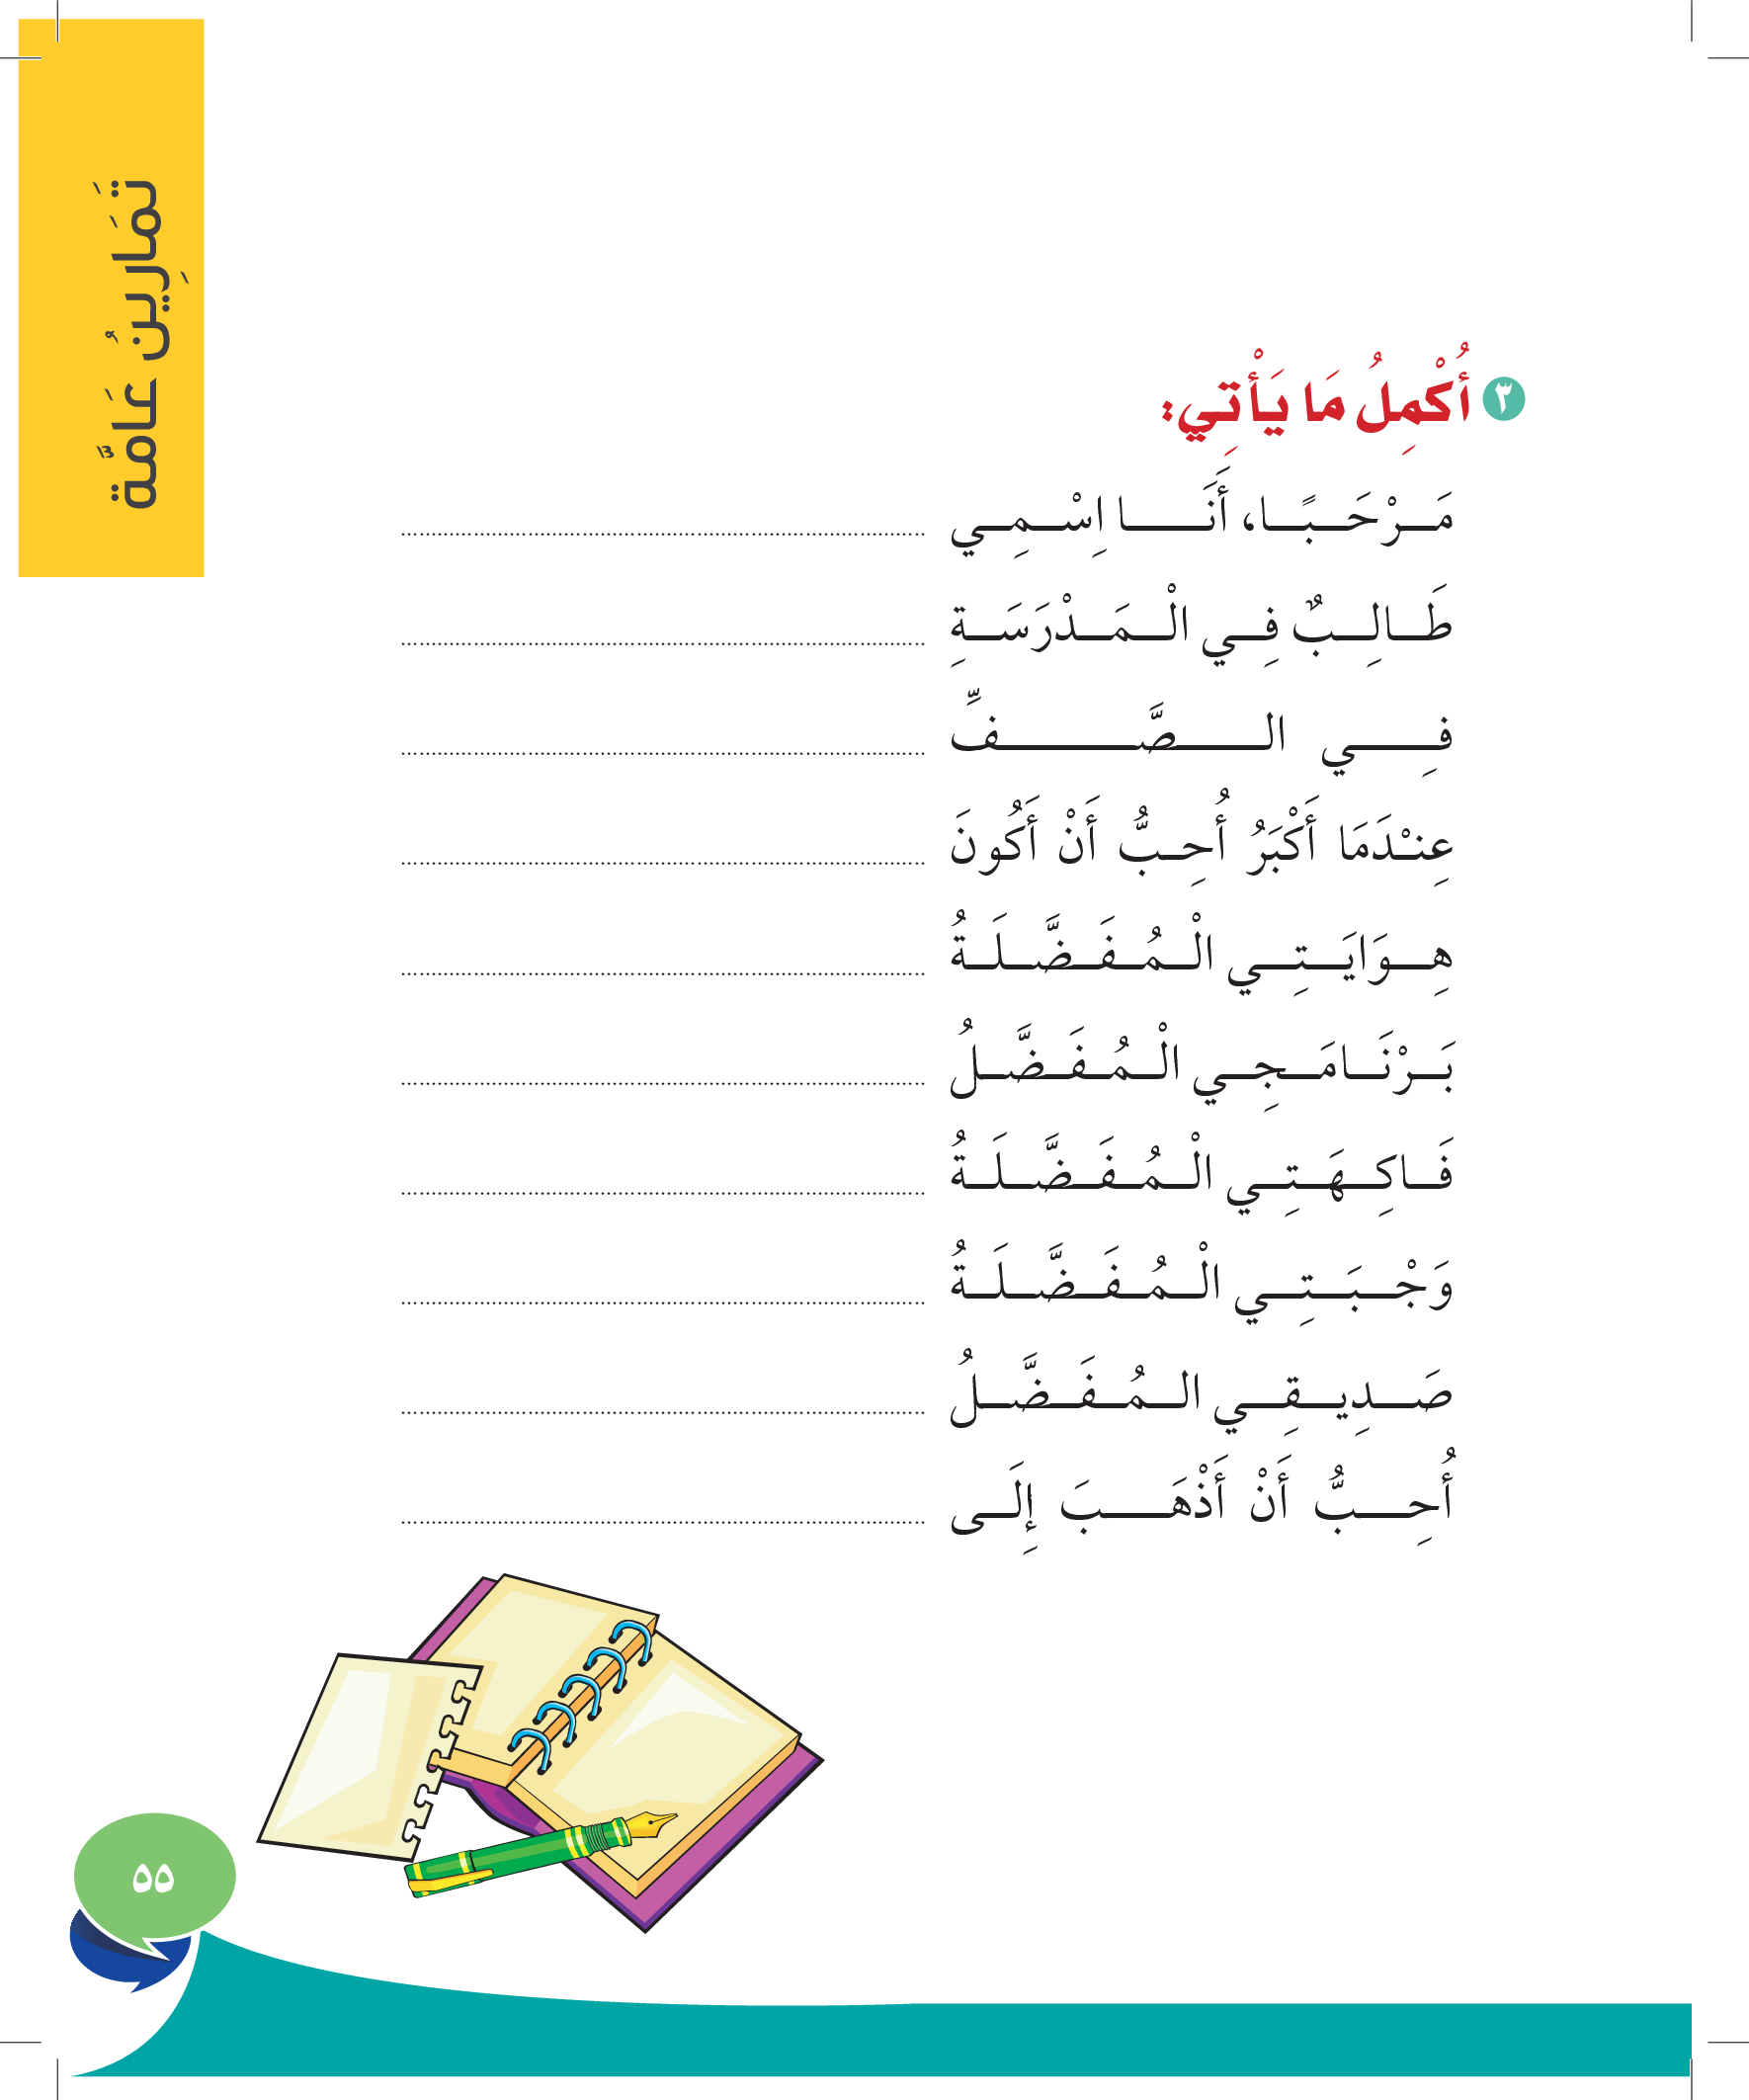 تَمَارِينُ عَامَّة
٣ أُكْمِلُ مَا يَأْتِي:
مَرْحَبًا، أَنَا اِسْمِي ........................
طَالِبٌ فِي الْمَدْرَسَةِ ........................
فِي الصَّفِّ ........................
عِنْدَمَا أَكْبَرُ أُحِبُّ أَنْ أَكُونَ ........................
هِوَايَتِي الْمُفَضَّلَةُ ........................
بَرْنَامَجِي الْمُفَضَّلُ ........................
فَاكِهَتِي الْمُفَضَّلَةُ ........................
وَجْبَتِي الْمُفَضَّلَةُ ........................
صَدِيقِي المُفَضَّلُ ........................
أُحِبُّ أَنْ أَذْهَبَ إِلَى ........................
٥٥